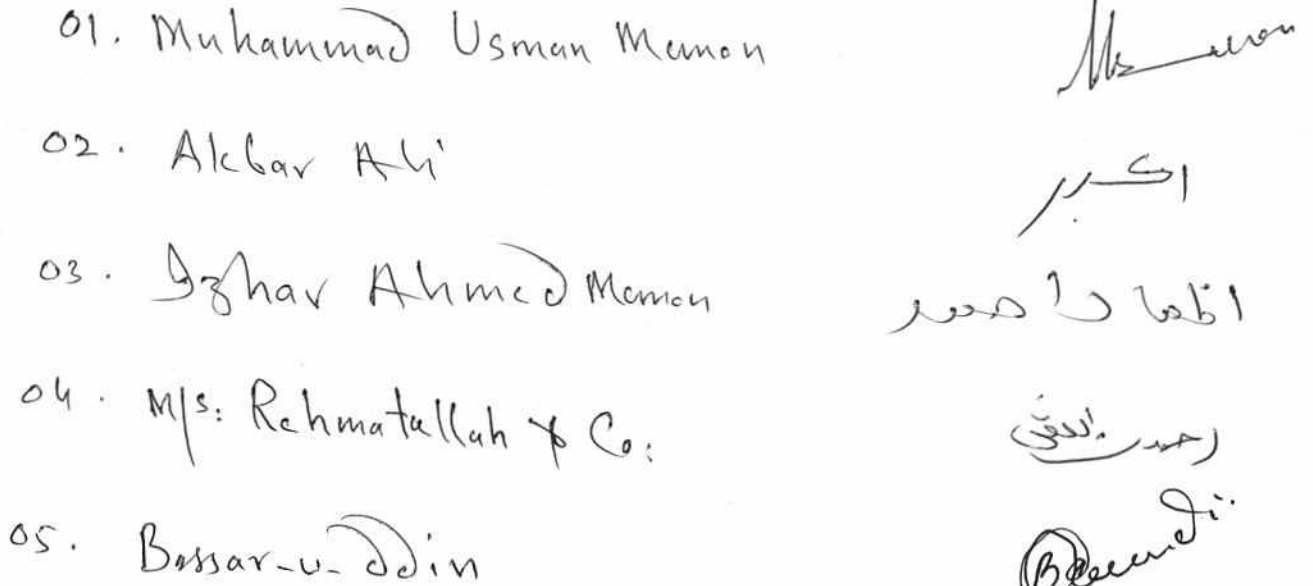 01. Muhammad Usman Memon
02. Akbar Ali اکبر
03. Izhar Ahmed Memon اظہار احمد
04. M/s: Rehmatullah & Co:
05. Bassar-u-ddin